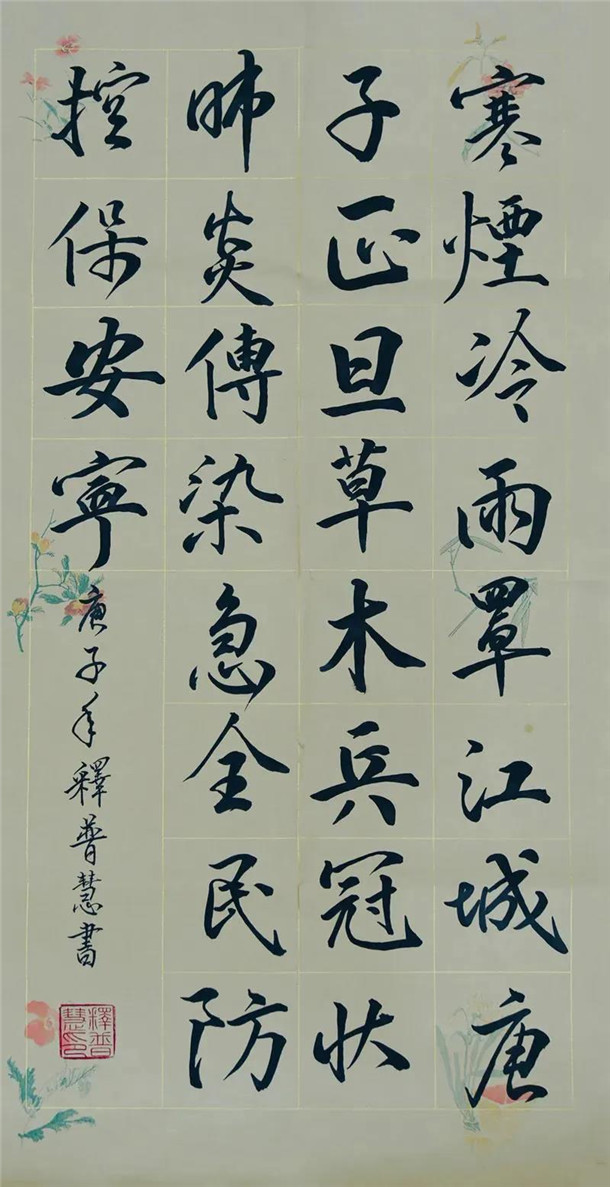 寒煙冷雨罩江城庚
子正旦草木兵冠狀
肺炎傳染急全民防
控保安寧
庚子年釋普慧書
釋普慧印